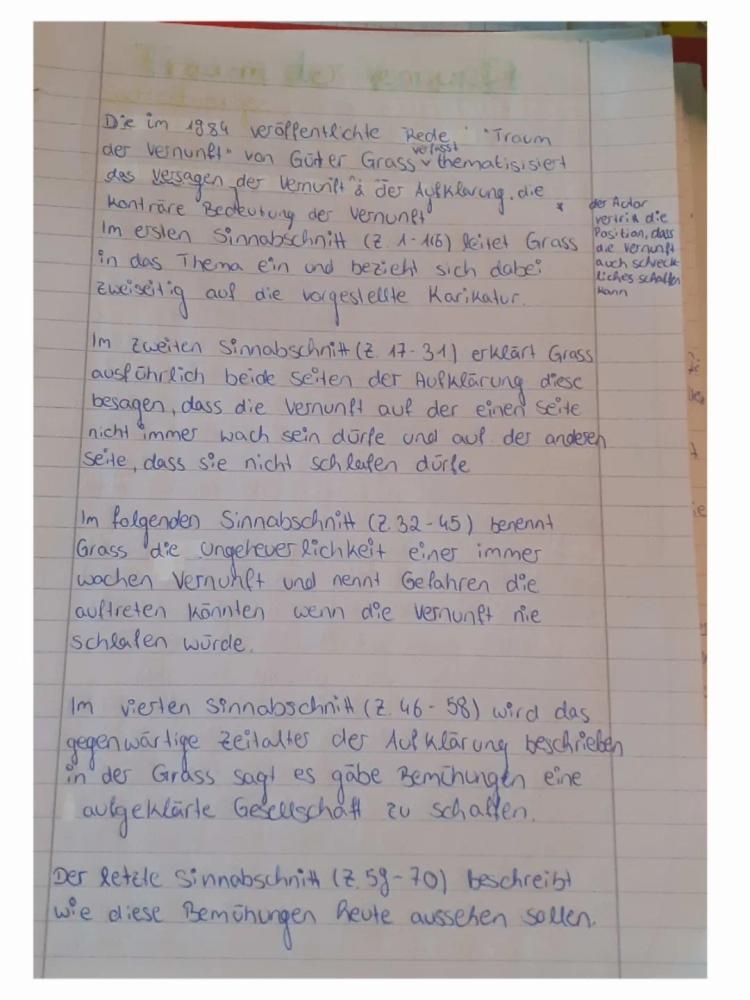 Traum der Vernunft
Die im 1984 veröffentlichte Rede "Traum
der Vernunft" von Güter Grass verfasst thematisisiert
das Versagen der Vernunft & der Aufklärung. die
konträre Bedeutung der Vernunft *
Im ersten Sinnabschnitt (Z. 1-16) leitet Grass
in das Thema ein und bezieht sich dabei
zweiseitig auf die vorgestellte Karikatur.
* der Autor
vertritt die
Position, dass
die Vernunft
auch schreck-
liches schaffen
kann
Im zweiten Sinnabschnitt (Z. 17-31) erklärt Grass
ausführlich beide Seiten der Aufklärung diese
besagen, dass die Vernunft auf der einen Seite
nicht immer wach sein dürfe und auf der anderen
Seite, dass sie nicht schlafen dürfe
Im folgenden Sinnabschnitt (Z. 32-45) benennt
Grass die Ungeheuerlichkeit einer immer
wachen Vernunft und nennt Gefahren die
auftreten könnten wenn die Vernunft nie
schlafen würde.
Im vierten Sinnabschnitt (Z. 46-58) wird das
gegenwärtige Zeitalter der Aufklärung beschrieben
in der Grass sagt es gäbe Bemühungen eine
aufgeklärte Gesellschaft zu schaffen.
Der letzte Sinnabschnitt (Z. 59-70) beschreibt
wie diese Bemühungen heute aussehen sollen.